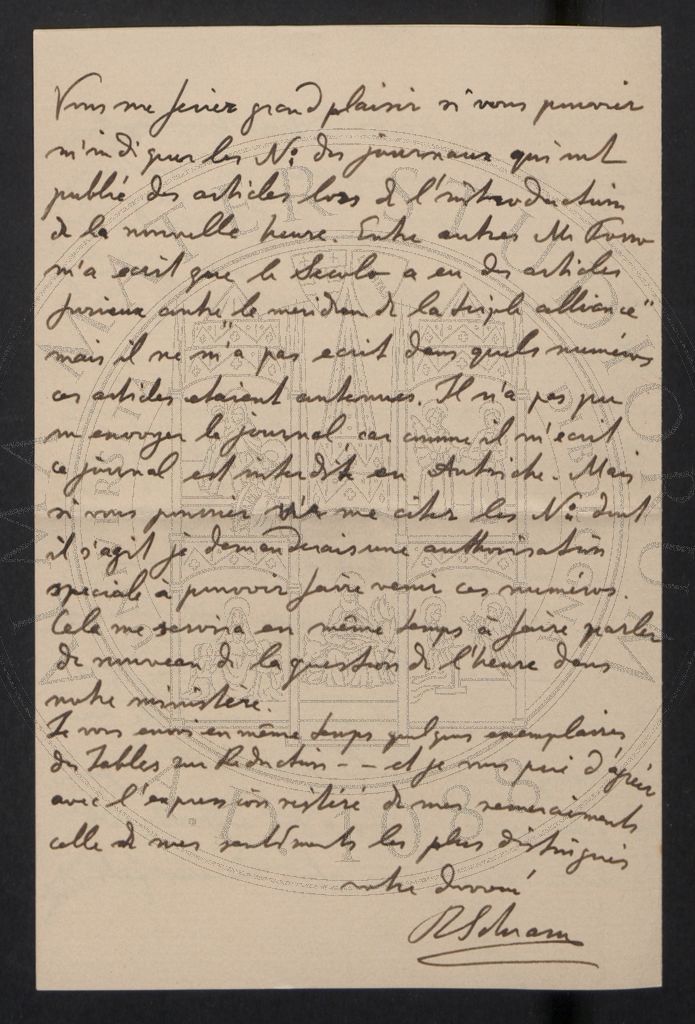 Vous me feriez grand plaisir si vous pouviez
m'indiquer les Nos des journaux qui ont
publié des articles lors de l'introduction
de la nouvelle heure. Entre autres Mr
m'a ecrit que le Secolo a eu des articles
furieux contre le meridien de la triple alliance"
mais il ne m'a pas ecrit dans quels numéros
ces articles etaient contenues. Il n'a pas pu
m envoyer le journal, car comme il m'ecrit
ce journal est interdit en Autriche. Mais
si vous pouviez me citer les Nos dont
il s'agit je demanderais une authorisation
speciale à pouvoir faire venir ces numéros.
Cela me servira en même temps à faire parler
de nouveau de la question de l'heure dans
notre ministère.
Je vous envoi en même temps quelques exemplaires
des Tables zur Reduction - - et je vous prie d'agréer
avec l'expression réitéré de mes remerciments
celle de mes sentiments les plus distingués
votre devoué
R Schram
ALMA MATER STUDIORUM
A.D. 1088